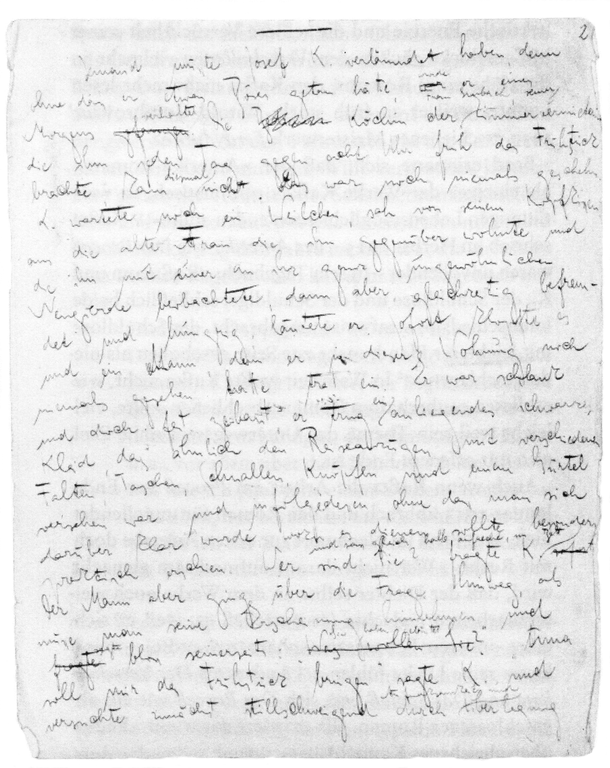 2
Jemand mußte Josef K. verläumdet haben denn
ohne daß er etwas Böses getan hätte war er eines
Morgens verhaftet. Die Köchin der Zimmervermieterin
die ihm jeden Tag gegen acht Uhr früh das Frühstück
brachte kam diesmal nicht. Das war noch niemals geschehn.
K. wartete noch ein Weilchen sah von seinem Kopfkissen
aus die alte Frau die ihm gegenüber wohnte und
die ihn mit einer an ihr ganz ungewöhnlichen
Neugierde beobachtete dann aber gleichzeitig befrem-
det und hungrig läutete er. Sofort klopfte es
und ein Mann, den er in dieser Wohnung noch
niemals gesehen hatte trat ein. Er war schlank
und doch fest gebaut, er trug ein anliegendes schwarzes
Kleid das ähnlich den Reiseanzügen mit verschiedenen
Falten, Taschen Schnallen Knöpfen und einem Gürtel
versehen war und infolgedessen ohne daß man sich
darüber klar wurde, wozu es dienen sollte besonders
praktisch erschien. Wer sind Sie? fragte K.
und saß gleich halb aufrecht im Bett
Der Mann aber gieng über die Frage hinweg als
müsse man seine Erscheinung hinnehmen und
sagte bloß seinerseits: Sie haben geläutet? Anna
soll mir das Frühstück bringen sagte K. und
versuchte zunächst stillschweigend durch Aufmerksamkeit und Überlegung